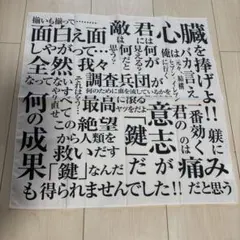 心臓を捧げよ!!
バカ言え
躾に一番効くのは痛みだと思う
君は何が
意志が
敵は何だと思う?
我々調査兵団が
何のために血を流しているかを
最高
「鍵」だ
人類を
救う
「鍵」なんだ
揃いも揃って………
面白え面しやがって…
全然なって
すべてやり直せ
何の成果も得られませんでした!!